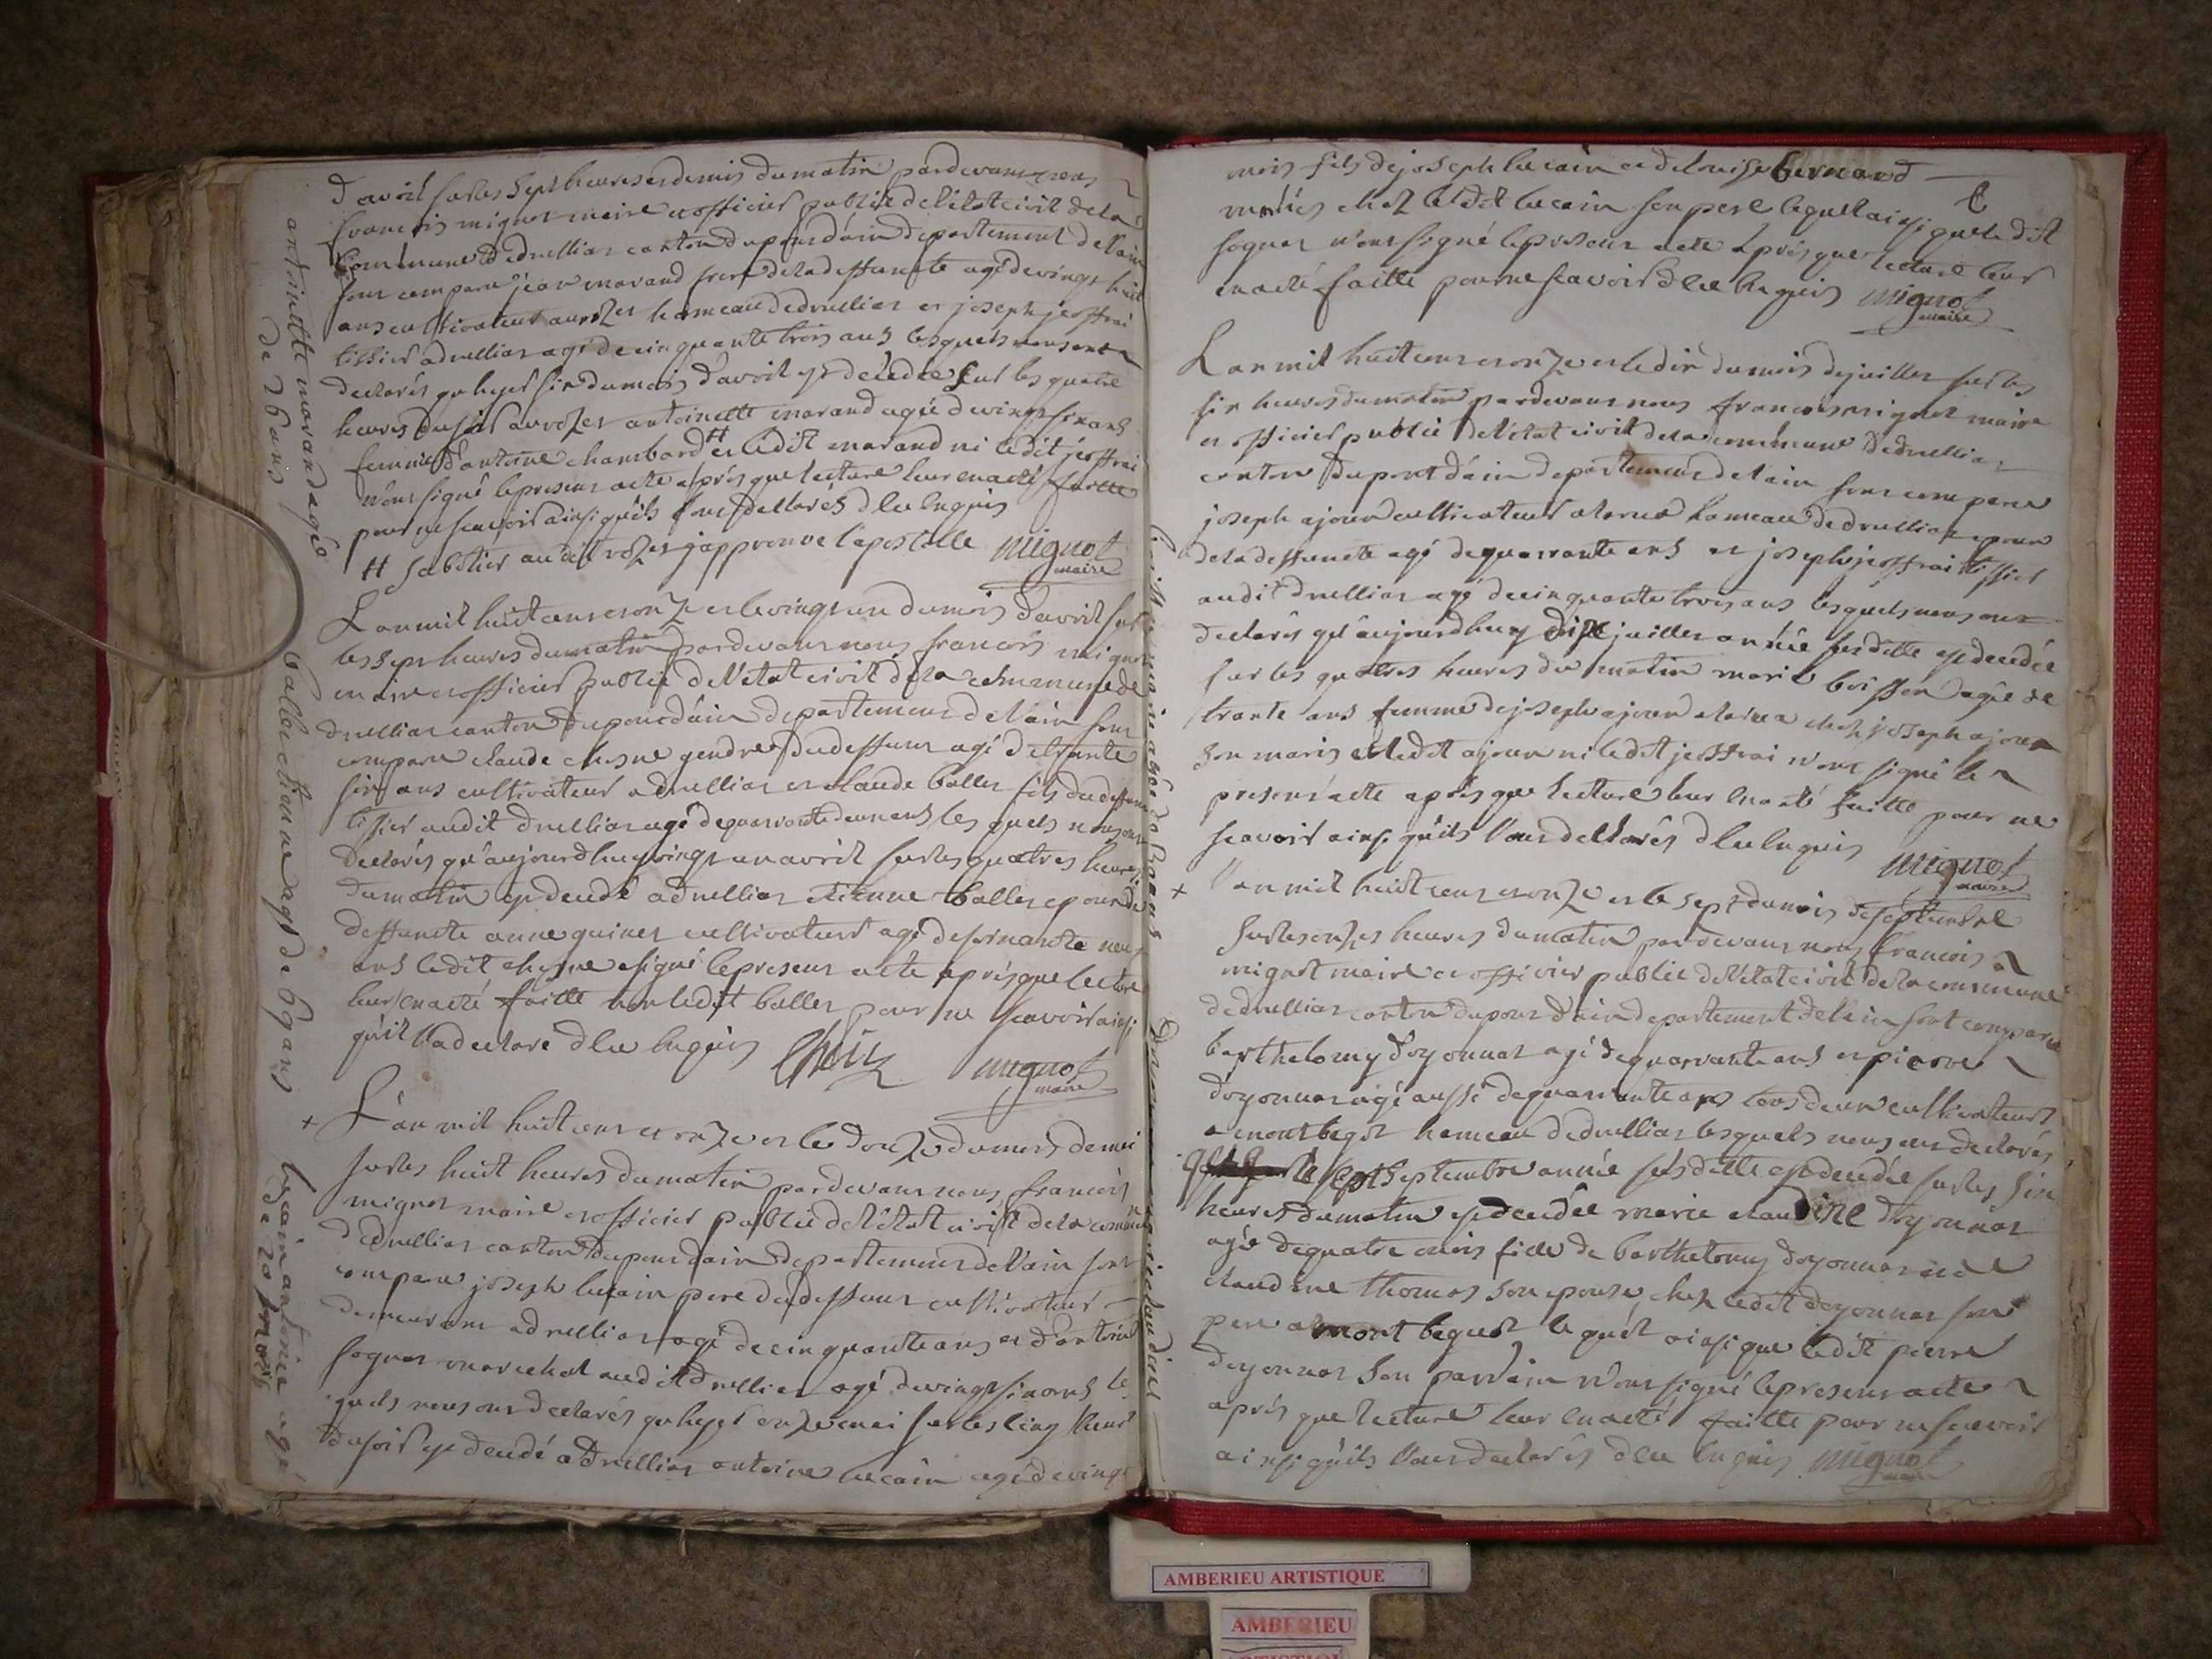 d'avril sur les sept heures et demis du matin pardevant nous
francois mignot maire et officier public de l'etat civil de la
commune de druillias canton du pont d'ain departement de l'ain
sont comparu jean marand frere de la deffuncte agé de vingt huit
ans cultivateur au rozet hameau de druillias et joseph jeoffrai
tissier a druillias agé de cinquante trois ans lesquels nous ont
declarés qu'hyer six du mois d'avril est décédée sur les quatre
heures du soir au rozet antoinette marand agée de vingt six ans
femme d'antoine chambard H et ledit marand ni ledit jeoffrai
n'ont signé le present acte après que lecture leur en a eté faitte
pour ne scavoir ainsi qu'ils l'ont dellarés d lee enquis
H sabotier au dit rozet j'approuve l'apostille mignot
maire
antoinette marand agée
de 26 ans
L'an mil huit cent et onze et le vingt un du mois d'avril sur
les sept heures du matin pardevant nous francois mignot
maire et officier public de l'etat civil de la commune de
druillias canton du pont d'ain departement de l'ain sont
comparu claude chesne gendre du deffunt agé de trante
six ans cultivateur a druillias et claude ballet fils du deffunt
tissier audit druillias agé de quarrante deux ans les quels nous ont
declarés qu'aujourdhuy vingt un avril sur les quatres heures
du matin est decedé a druillias etienne ballet epoux de
deffuncte anne guinet cultivateur agé de soixante neuf
ans ledit chesne a signé le present acte après que lecture
leur en a eté faitte non ledit ballet pour ne scavoir ainsi
qu'il l'a declaré d lee enquis
mignot
maire
ballet etienne agé de 69 ans
+ L'an mil huit cent et onze et le douze du mois de mai
sur les huit heures du matin pardevant nous francois
mignot maire et officier public de l'état civil de la commune
de druillias canton du pont d'ain departement de l'ain sont
comparu joseph lucain pere du deffunt cultivateur
demeurant a druillias agé de cinquante ans et d'antoine
fognat marechal audit druillias agé de vingt six ans les
quels nous ont declarés qu'hyer onze mai sur les cinq heures
du soir est decedé a druillias antoine lucain agé de vingt
lucain antoine agé
de 20 mois
mois fils de joseph lucain et de louise bernard
chez ledit lucain son pere lequel ainsi que ledit
fognat n'ont signé le present acte après que lecture leur
en a eté faitte pour ne scavoir d lee enquis mignot
maire
L'an mil huit cent et onze et le dix du mois de juillet sur les
six heures du matin pardevant nous francois mignot maire
et officier public de l'etat civil de la commune de druillias
canton du pont d'ain departement de l'ain sont comparu
joseph ajoux cultivateur hameau de druillias epoux
de la deffuncte agé de quarrante ans et joseph jeoffrai tissier
audit druillias agé de cinquante trois ans lesquels nous ont
declarés qu'aujourdhuy dix juillet année susditte est decedée
sur les quattres heures du matin marie boisson agée de
trante ans femme de joseph ajoux chez joseph ajoux
son maris et ledit ajoux ni ledit jeoffrai n'ont signé le
present acte après que lecture leur en a eté faitte pour ne
scavoir ainsi qu'ils l'ont dellarés d lee enquis mignot
maire
+ L'an mil huit cent et onze et le sept du mois de septembre
sur les onzes heures du matin pardevant nous francois
mignot maire et officier public de l'etat civil de la commune
de druillias canton du pont d'ain departement de l'ain sont comparu
barthelemy doyonnat agé de quarrante ans et pierre
doyonnat agé aussi de quarrante ans tous deux cultivateurs
a mont begot hameau de druillias lesquels nous ont declarés
le sept septembre année susditte est decedée sur les six
heures du matin est decedée marie claudine doyonnat
agée de quatre mois fille de barthelemy doyonnat et de
claudine thomas son epouse, chez ledit doyonnat son
pere a mont beguot le quel ainsi que ledit pierre
doyonnat son parrain n'ont signé le present acte
après que lecture leur en a eté faitte pour ne scavoir
ainsi qu'ils l'ont declarés d lee enquis mignot
maire
AMBERIEU ARTISTIQUE
AMBERIEU
ARTISTIQUE